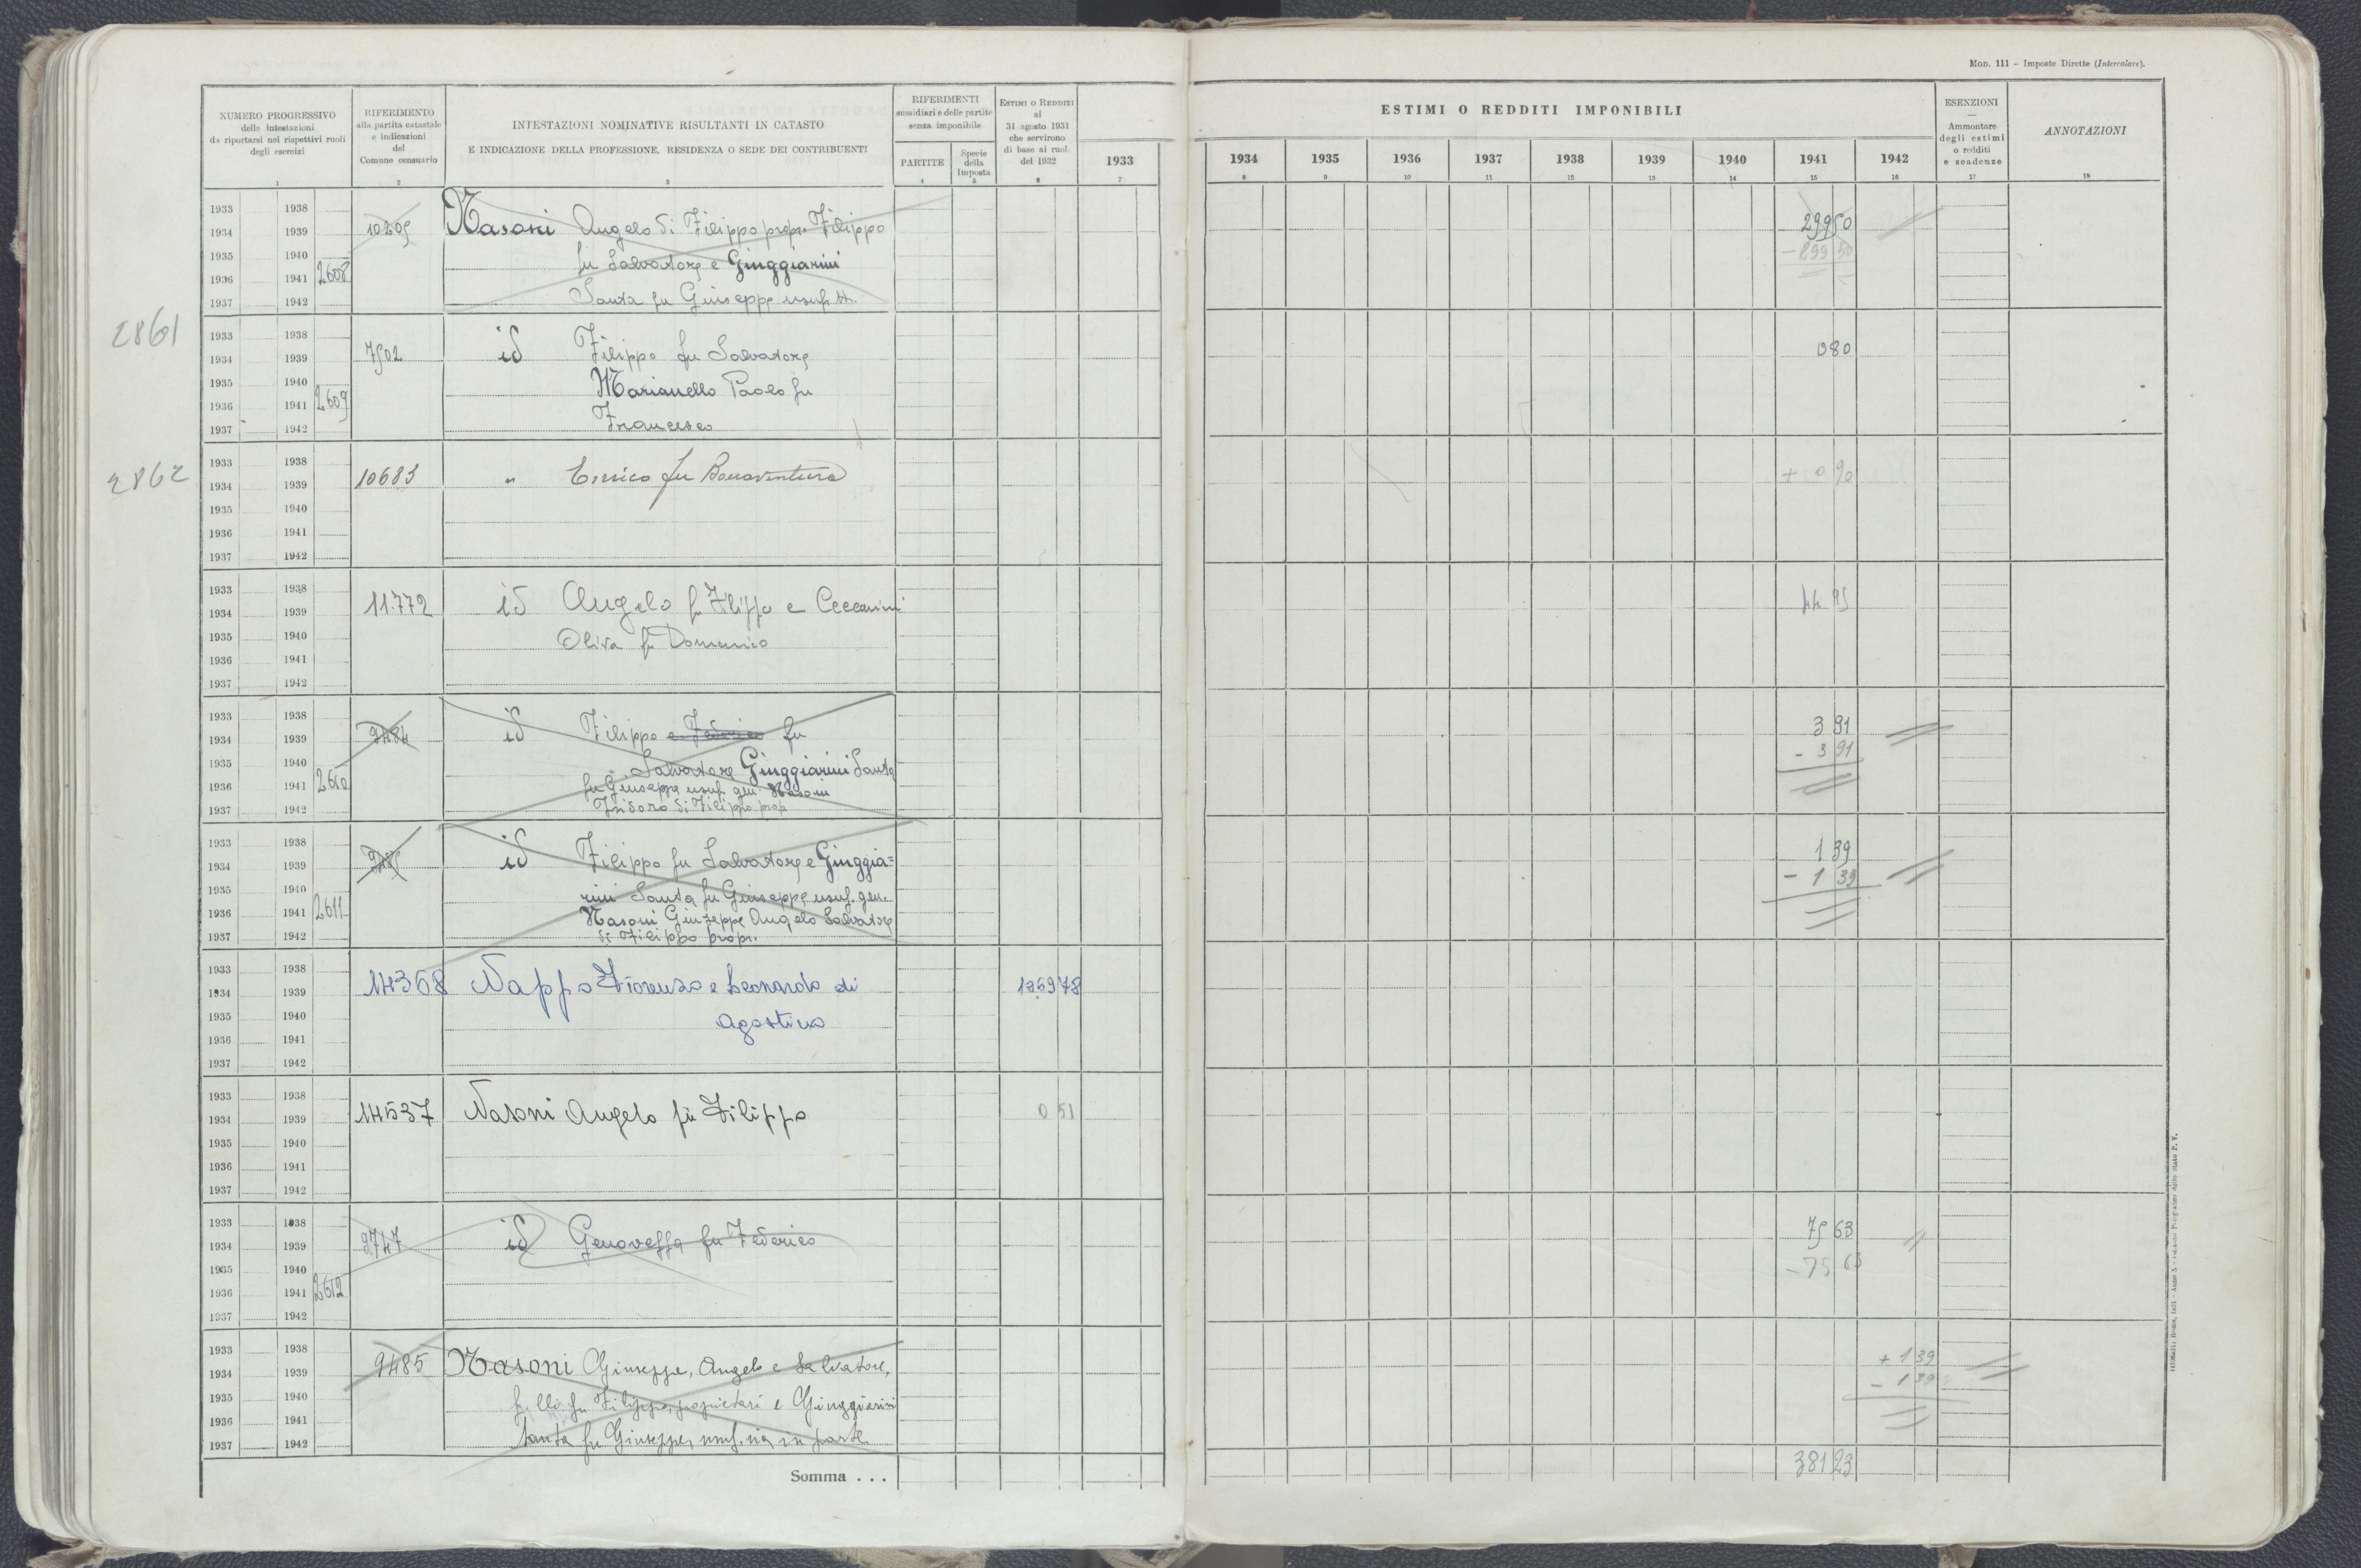 Mod. 111 – Imposte Dirette (Intercalare).
NUMERO PROGRESSIVO
delle intestazioni
da riportarsi nei rispettivi ruoli
degli esercizi
1
RIFERIMENTO
alla partita catastale
e indicazioni
del
Comune censuario
2
INTESTAZIONI NOMINATIVE RISULTANTI IN CATASTO
E INDICAZIONE DELLA PROFESSIONE, RESIDENZA O SEDE DEI CONTRIBUENTI
3
RIFERIMENTI
sussidiari e delle partite
senza imponibile
PARTITE
4
Specie
della
Imposta
5
ESTIMI O REDDITI
al
31 agosto 1931
che servirono
di base ai ruoli
del 1932
6
1933
7
ESTIMI O REDDITI IMPONIBILI
1934 1935 1936 1937 1938 1939 1940 1941 1942
8 9 10 11 12 13 14 15 16
ESENZIONI
—
Ammontare
degli estimi
o redditi
e scadenze
17
ANNOTAZIONI
18
1933 1938
1934 1939 Nasoni Angelo di Filippo propr. Filippo 299 50
1935 1940 fu Salvatore e Ginggiarini - 299 50
1936 1941 2608
1937 1942 Santa fu Giuseppe usuf.tt.
2861
1933 1938
1934 1939 7502 id Filippo fu Salvatore 0 80
1935 1940 Marianello Paolo fu
1936 1941 2609
1937 1942 Francesco
2862
1933 1938
1934 1939 10683 " Enrico fu Bonaventura + 0 90
1935 1940
1936 1941
1937 1942
1933 1938
1934 1939 11772 id Angelo fu Filippo e Ceccarini 44 95
1935 1940 Oliva fu Domenico
1936 1941
1937 1942
1933 1938
1934 1939 9484 id Filippo e Federico fu 3 91
1935 1940 Salvatore Ginggiarini Santa - 3 91
1936 1941 2610 fu Giuseppe usuf. gen. Nasoni
1937 1942 Isidoro di Filippo prop
1933 1938
1934 1939 9485 id Filippo fu Salvatore e Ginggia= 1 39
1935 1940 rini Santa fu Giuseppe usuf. gen. - 1 39
1936 1941 2611 Nasoni Giuseppe Angelo Salvatore
1937 1942 di Filippo propr.
1933 1938
1934 1939 14368 Nappo Fiorenzo e Leonardo di
1935 1940 Agostino
1936 1941
1937 1942
1933 1938
1934 1939 14537 Nasoni Angelo fu Filippo 0 51
1935 1940
1936 1941
1937 1942
1933 1938
1934 1939 9747 id Genoveffa fu Federico 75 63
1935 1940 - 75 63
1936 1941 2612
1937 1942
1933 1938
1934 1939 9485 Nasoni Giuseppe, Angelo e Salvatore, + 1 39
1935 1940 f.lli fu Filippo, proprietari e Ginggiarini - 1 39
1936 1941
1937 1942 Santa fu Giuseppe, usuf.ria in parte
Somma . . . 381 23